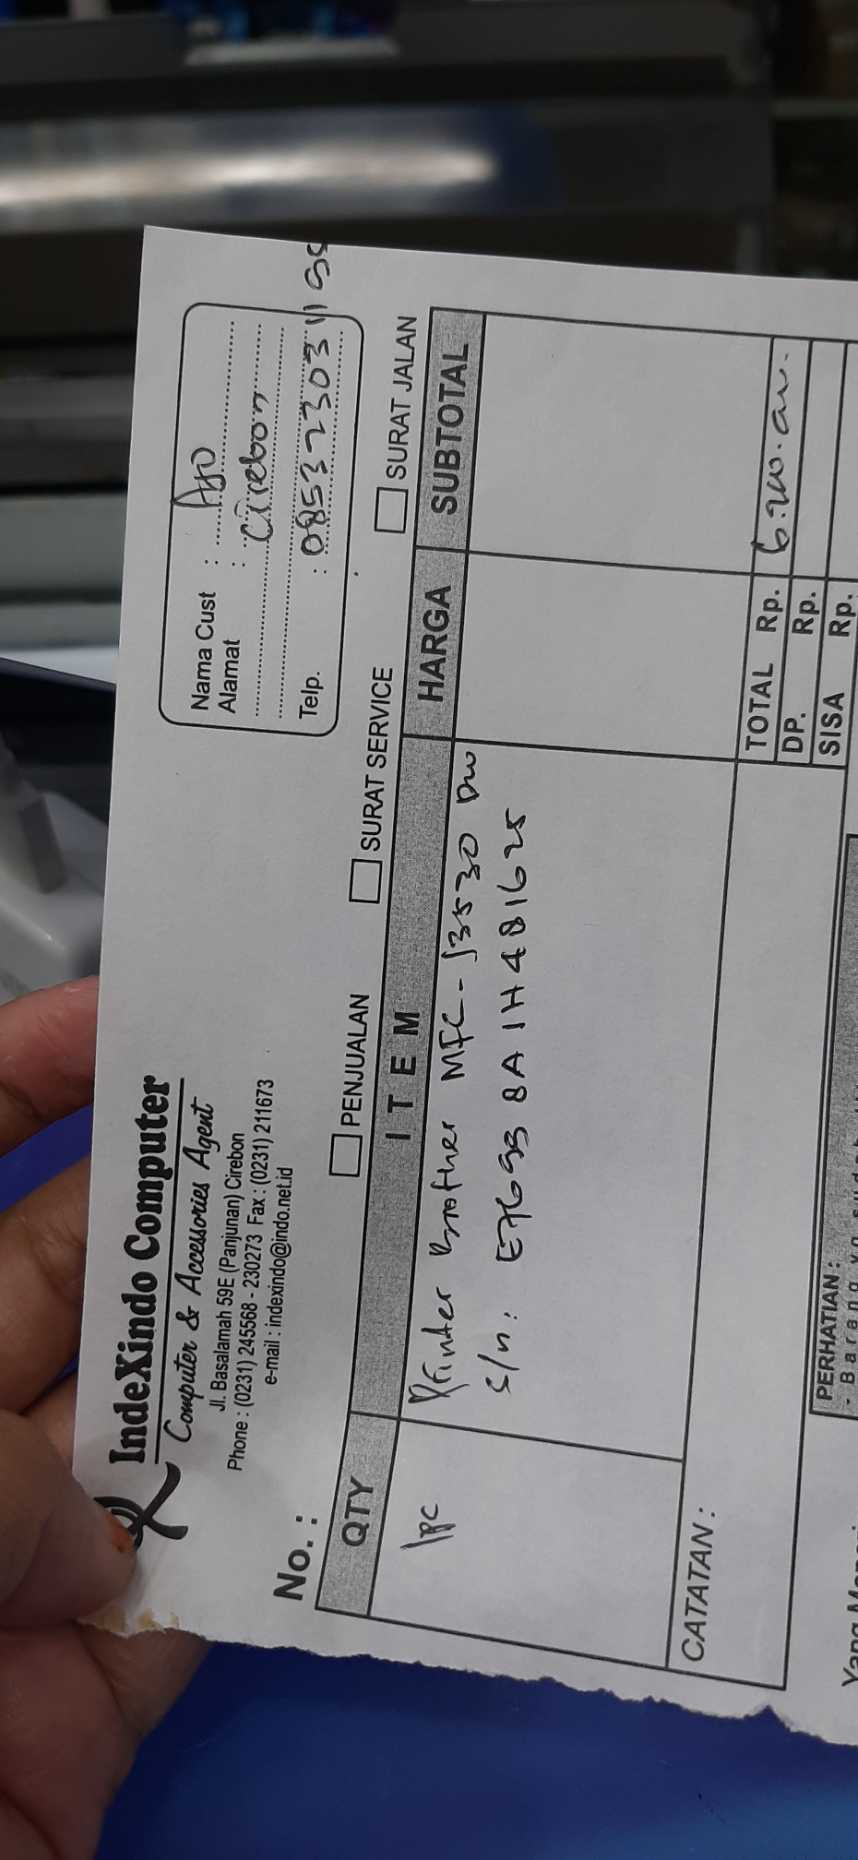 IndeXindo Computer
Computer & Accessories Agent
Jl. Basalamah 59E (Panjunan) Cirebon
Phone : (0231) 245568 - 230273 Fax : (0231) 211673
e-mail : indexindo@indo.net.id
Nama Cust :
Alamat : Cirebon
Telp. : 0853 2303 11
No. :
PENJUALAN SURAT SERVICE SURAT JALAN
QTY ITEM HARGA SUBTOTAL
1pc Printer Brother MFC - J3530 DW
S/N : E76 8A1H481625
CATATAN :
TOTAL Rp.
DP. Rp.
SISA Rp.
PERHATIAN :
- Barang yg sudah
Yang